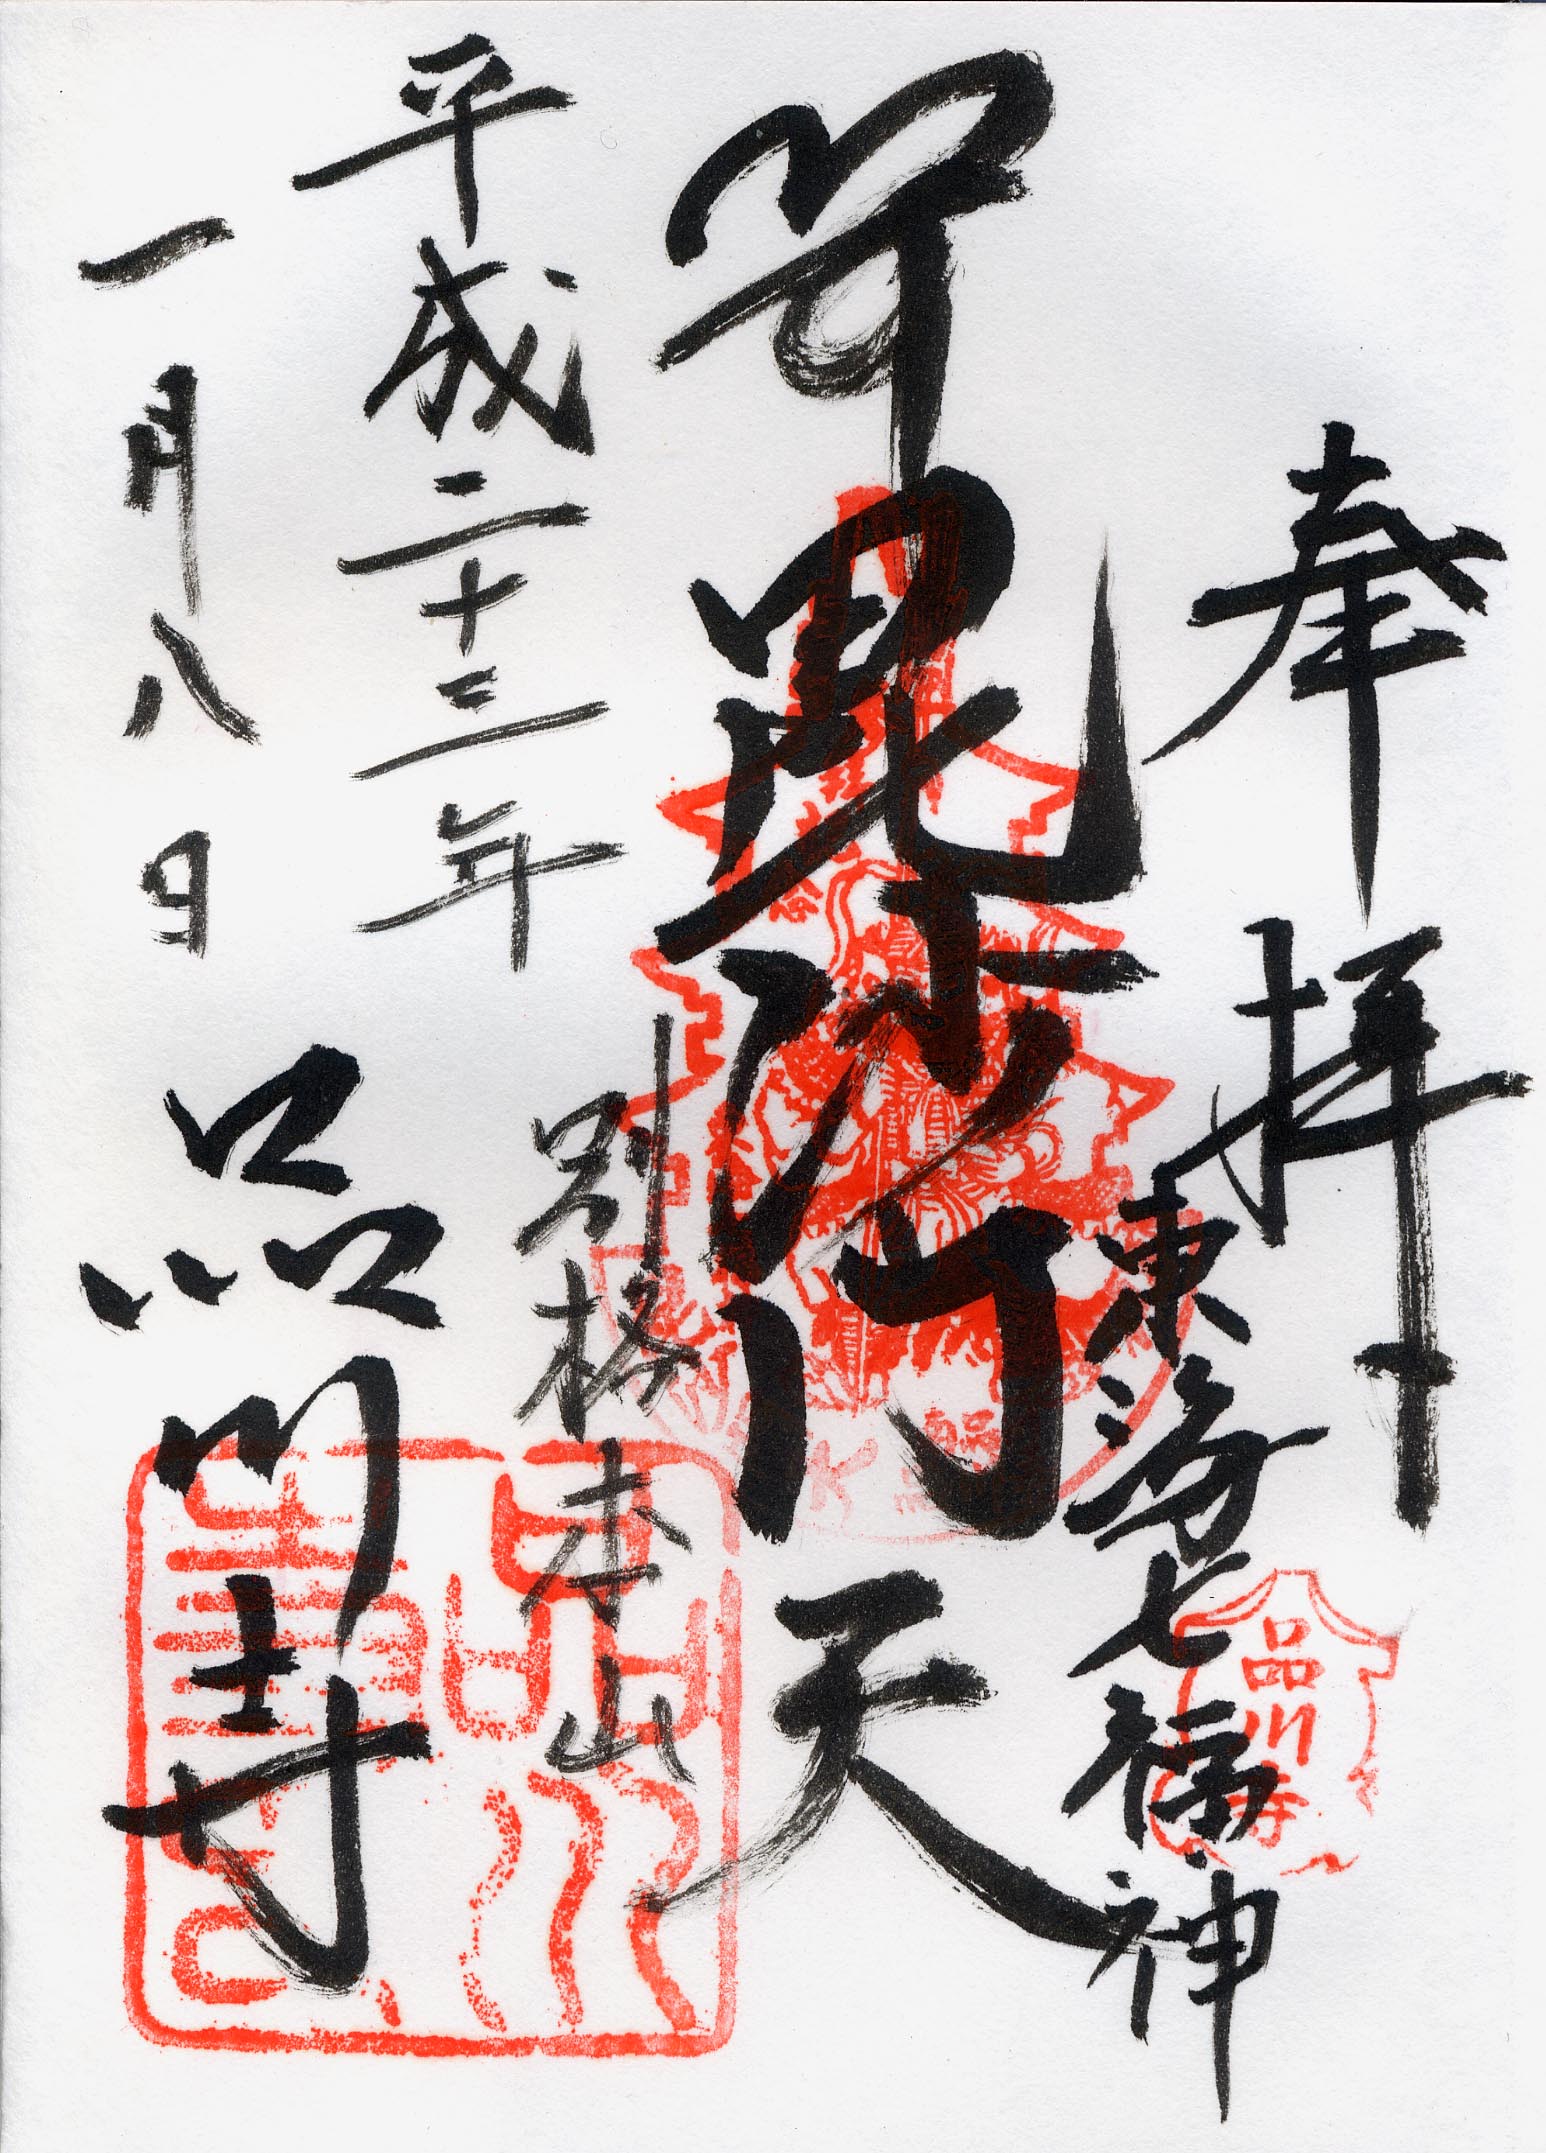 奉拝
東海七福神
品川寺
毘沙門天
別格本山
平成二十三年
一月八日
品川寺